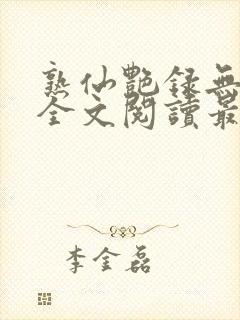 熟仙艷録無
全文閱讀最
李金磊